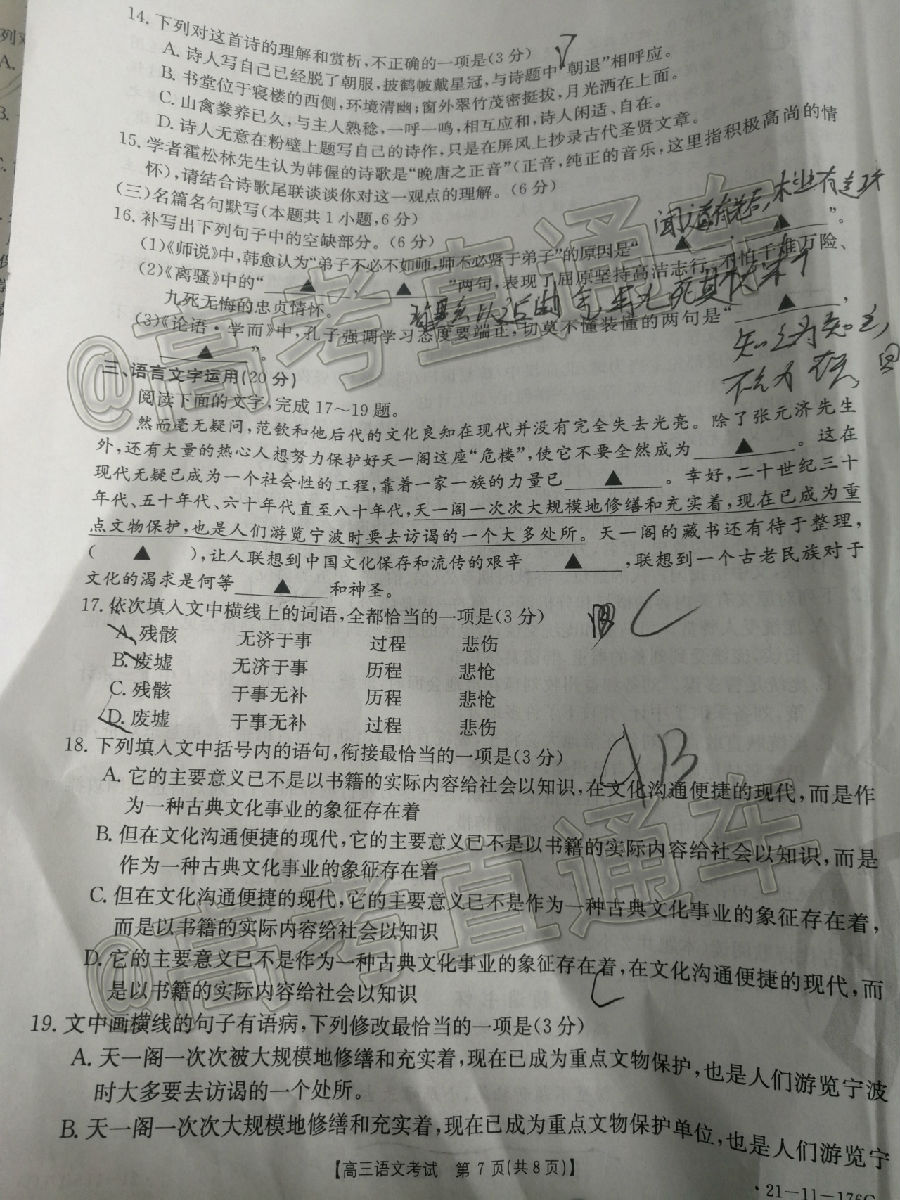 14. 下列对这首诗的理解和赏析,不正确的一项是(3分)
A. 诗人写自己已经脱了朝服,披鹤帔戴星冠,与诗题中“朝退”相呼应。
B. 书堂位于寝楼的西侧,环境清幽;窗外翠竹茂密挺拔,月光洒在上面。
C. 山禽豢养已久,与主人熟稔,一呼一鸣,相互应和,诗人闲适、自在。
D. 诗人无意在粉壁上题写自己的诗作,只是在屏风上抄录古代圣贤文章。
15. 学者霍松林先生认为韩偓的诗歌是“晚唐之正音”(正音,纯正的音乐,这里指积极高尚的情
怀),请结合诗歌尾联谈谈你对这一观点的理解。(6分)
(三)名篇名句默写(本题共1小题,6分)
16. 补写出下列句子中的空缺部分。(6分)
(1)《师说》中,韩愈认为“弟子不必不如师,师不必贤于弟子”的原因是“▲,▲”。
(2)《离骚》中的“▲,▲”两句,表现了屈原坚持高洁志行、不怕千难万险、
九死无悔的忠贞情怀。
(3)《论语·学而》中,孔子强调学习态度要端正,切莫不懂装懂的两句是“▲,
▲”。
三、语言文字运用(20分)
阅读下面的文字,完成17~19题。
然而毫无疑问,范钦和他后代的文化良知在现代并没有完全失去光亮。除了张元济先生
外,还有大量的热心人想努力保护好天一阁这座“危楼”,使它不要全然成为▲。这在
现代无疑已成为一个社会性的工程,靠着一家一族的力量已▲。幸好,二十世纪三十
年代、五十年代、六十年代直至八十年代,天一阁一次次大规模地修缮和充实着,现在已成为重
点文物保护,也是人们游览宁波时要去访谒的一个大多处所。天一阁的藏书还有待于整理,
(▲),让人联想到中国文化保存和流传的艰辛▲,联想到一个古老民族对于
文化的渴求是何等▲和神圣。
17. 依次填入文中横线上的词语,全都恰当的一项是(3分)
C
A. 残骸 无济于事 过程 悲伤
B. 废墟 无济于事 历程 悲怆
C. 残骸 于事无补 历程 悲怆
D. 废墟 于事无补 过程 悲伤
18. 下列填入文中括号内的语句,衔接最恰当的一项是(3分)
B
A. 它的主要意义已不是以书籍的实际内容给社会以知识,在文化沟通便捷的现代,而是作
为一种古典文化事业的象征存在着
B. 但在文化沟通便捷的现代,它的主要意义已不是以书籍的实际内容给社会以知识,而是
作为一种古典文化事业的象征存在着
C. 但在文化沟通便捷的现代,它的主要意义已不是作为一种古典文化事业的象征存在着,
而是以书籍的实际内容给社会以知识
D. 它的主要意义已不是作为一种古典文化事业的象征存在着,在文化沟通便捷的现代,而
是以书籍的实际内容给社会以知识
C
19. 文中画横线的句子有语病,下列修改最恰当的一项是(3分)
A. 天一阁一次次被大规模地修缮和充实着,现在已成为重点文物保护,也是人们游览宁波
时大多要去访谒的一个处所。
B. 天一阁一次次大规模地修缮和充实着,现在已成为重点文物保护单位,也是人们游览宁
【高三语文考试 第7页(共8页)】
·21-11-176C
@高考直通车
@高考直通车